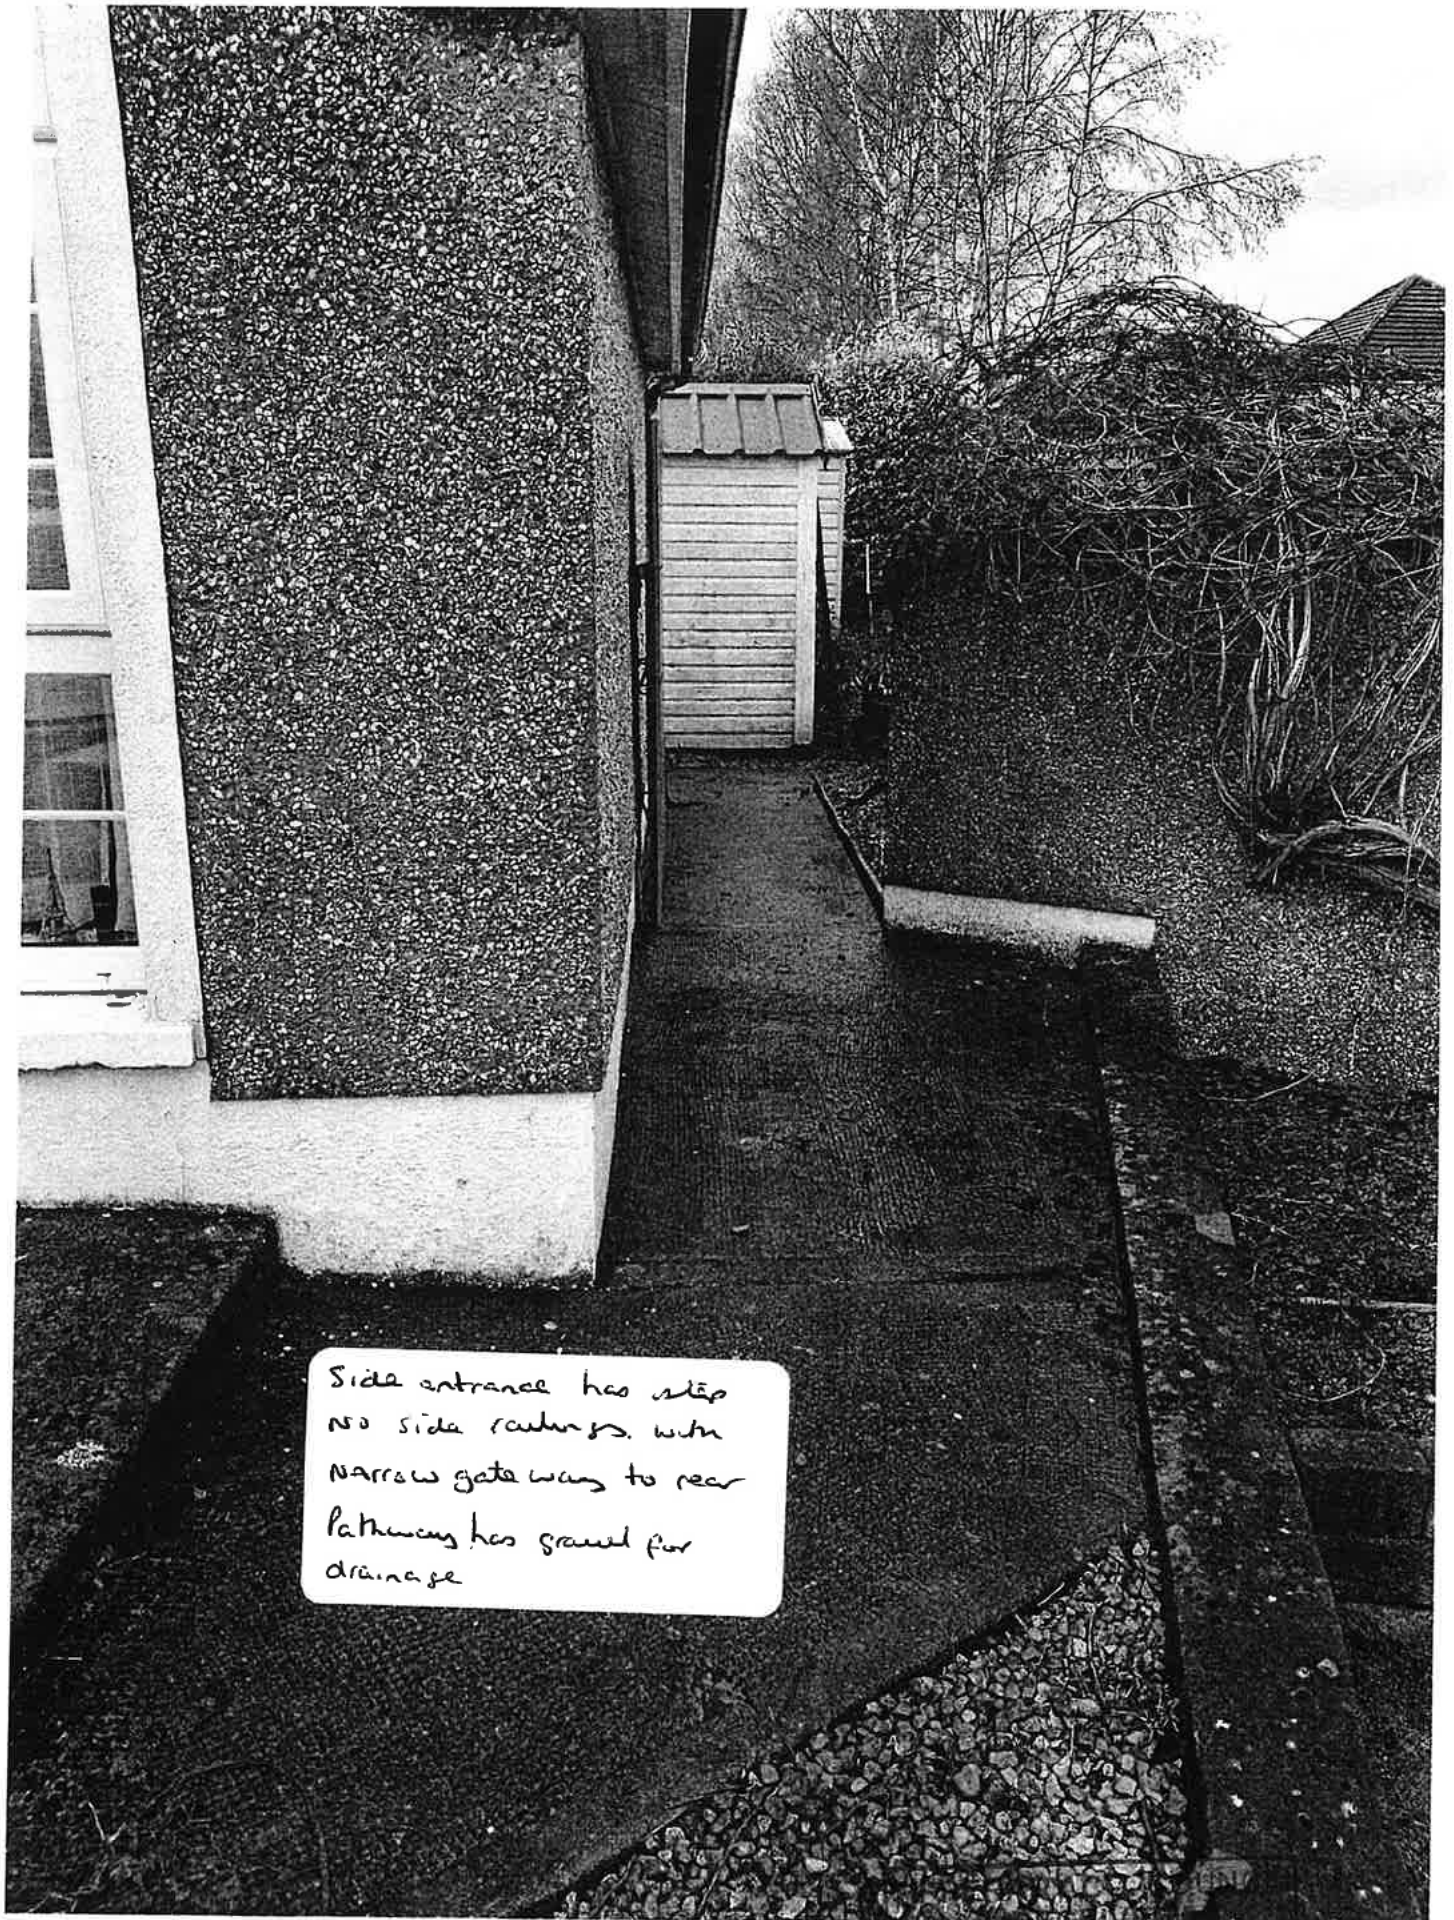 Side entrance has step
No side railings. with
Narrow gateway to rear
Pathway has gravel for
drainage